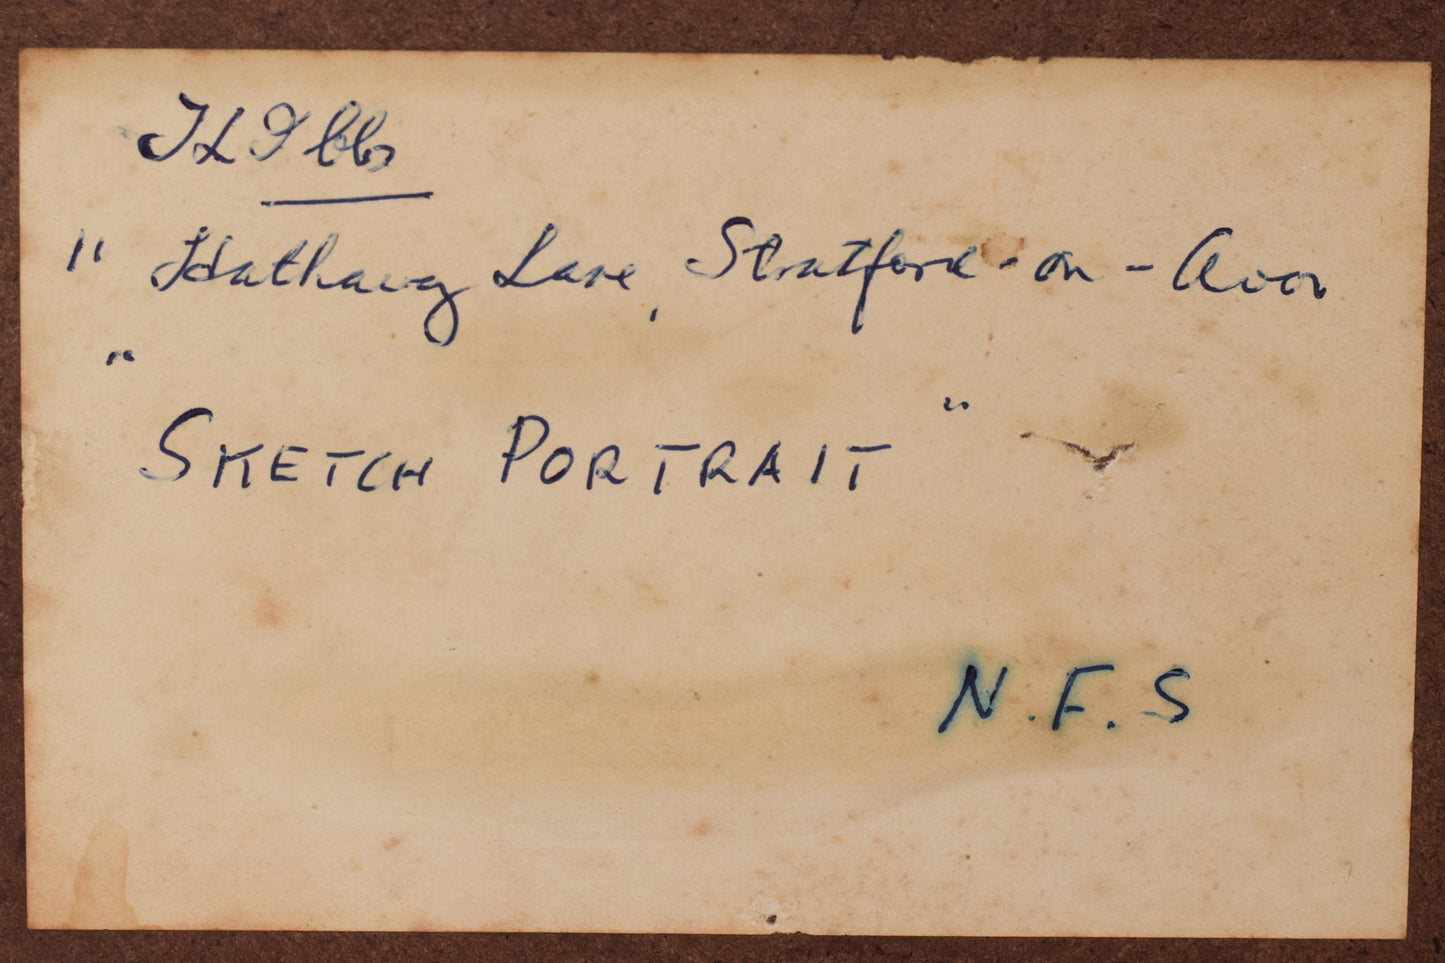 T L Gibbs
" Hathaway Lane, Stratford-on-Avon
"
SKETCH PORTRAIT "
N.F.S